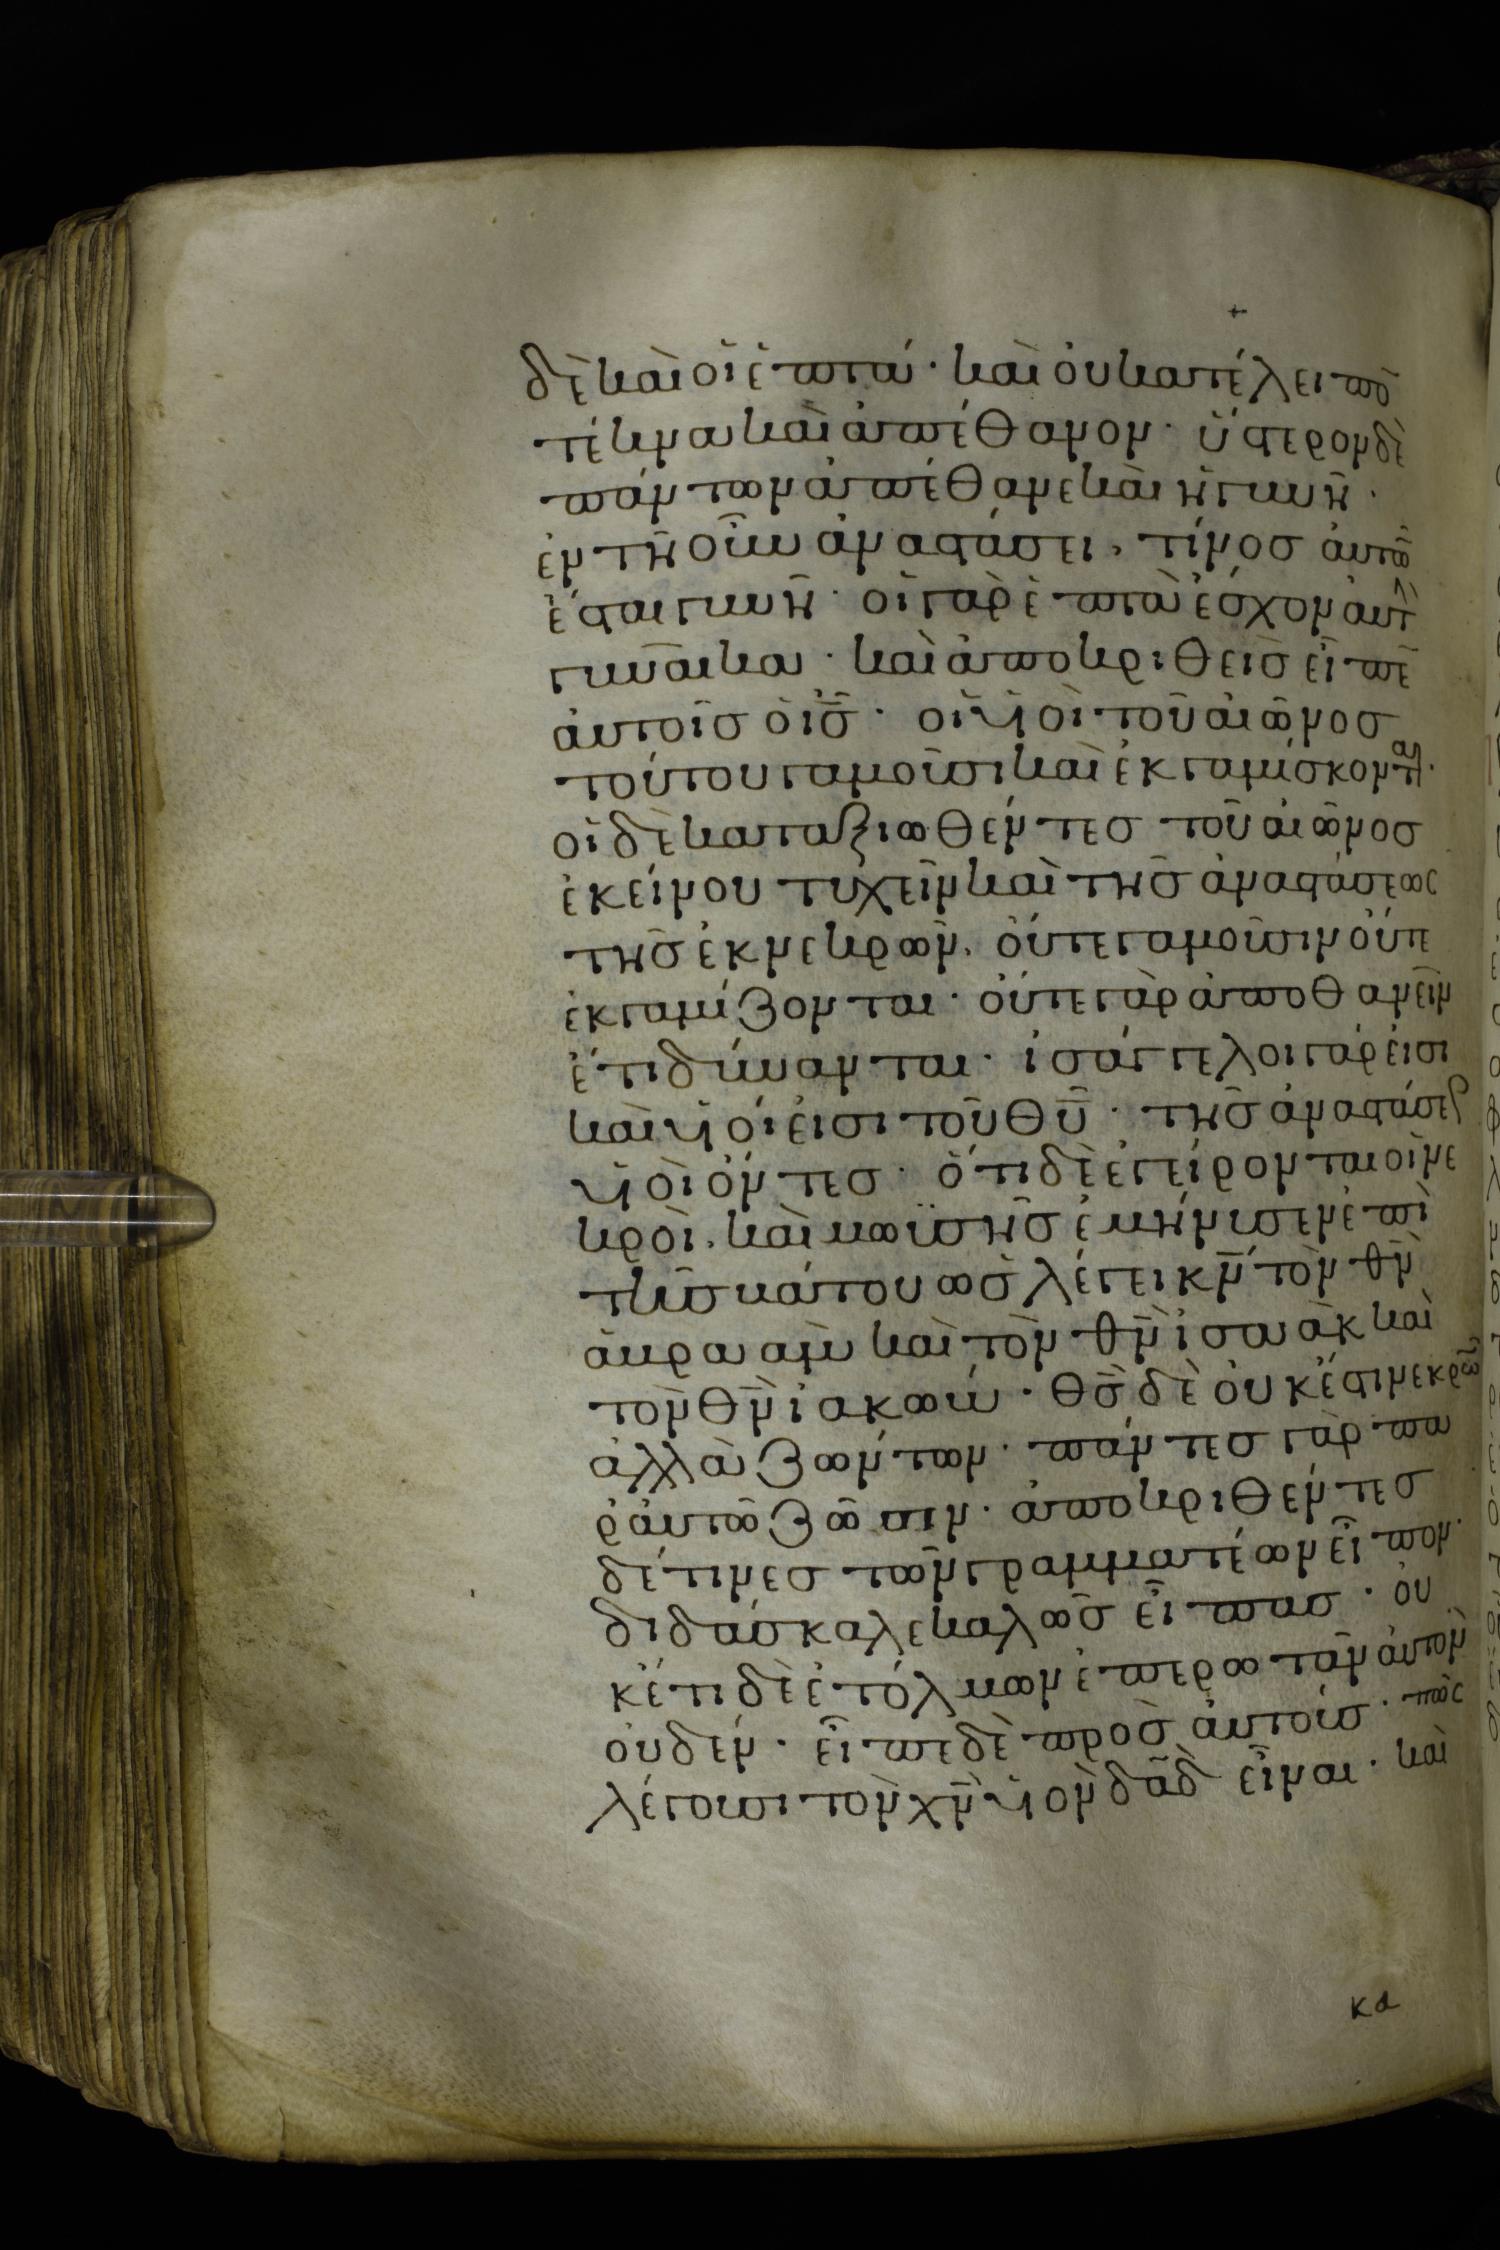 +
δὲ καὶ οἱ ἑπτά· καὶ οὐ κατέλειπο̄
τέκνα καὶ ἀπέθανον· ὕστερον δὲ
πάντων ἀπέθανε καὶ ἡ γυνή·
ἐν τῆ οὖν ἀναστάσει, τίνος αὐτῶ̄
ἔσται γυνή· οἱ γὰρ ἑπτὰ ἔσχον αὐτὴ̄
γυναῖκα· καὶ ἀποκριθεὶς εἶπε̄
αὐτοῖς ὁ ι̅ς̅· οἱ υἱοὶ τοῦ αἰῶνος
τούτου γαμοῦσι καὶ ἐκγαμίσκονται·
οἱ δὲ καταξιωθέντες τοῦ αἰῶνος
ἐκείνου τυχεῖν καὶ τῆς ἀναστάσεως
τῆς ἐκ νεκρῶν, οὔτε γαμοῦσιν οὔτε
ἐκγαμίζονται· οὔτε γὰρ ἀποθανεῖν
ἔτι δύνανται· ἰσάγγελοι γάρ εἰσι
καὶ υἱοί εἰσι τοῦ θ̅υ̅· τῆς ἀναστάσεως
υἱοὶ ὄντες· ὅτι δὲ ἐγείρονται οἱ νε
κροὶ, καὶ μωϋσῆς ἐμήνυσεν ἐπὶ
τῆς βάτου ὡς λέγει κ̅ν̅ τὸν θ̅ν̅
ἀβραὰμ καὶ τὸν θ̅ν̅ ἰσαὰκ καὶ
τὸν θ̅ν̅ ἰακώβ· θ̅ς̅ δὲ οὐκ ἔστι νεκρῶν
ἀλλὰ ζώντων· πάντες γὰρ πα
ρ αὐτῶ ζῶσιν· ἀποκριθέντες
δέ τινες τῶν γραμματέων εἶπον·
διδάσκαλε καλῶς εἶπας· οὐ
κέτι δὲ ἐτόλμων ἐπερωτᾶν αὐτὸν
οὐδέν· εἶπε δὲ πρὸς αὐτούς· πῶς
λέγουσι τὸν χ̅ν̅ υἱὸν δ̅α̅δ̅ εἶναι· καὶ
κα